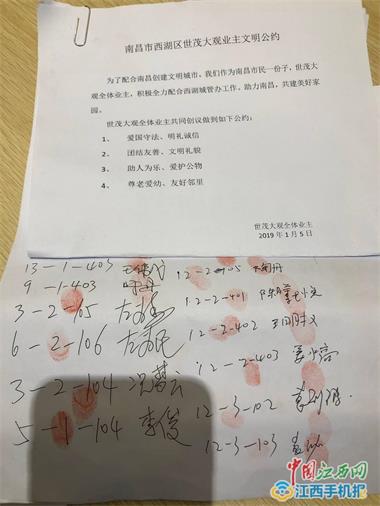 南昌市西湖区世茂大观业主文明公约
为了配合南昌创建文明城市，我们作为南昌市民一份子，世茂大
观全体业主，积极全力配合西湖城管办工作，助力南昌，共建美好家
园。
世茂大观全体业主共同创议做到如下公约：
1、 爱国守法、明礼诚信
2、 团结友善、文明礼貌
3、 助人为乐、爱护公物
4、 尊老爱幼、友好邻里
世茂大观全体业主
2019年1月5日
13-1-403
9-1-403 叶丹
3-2-105
6-2-106
3-2-104
5-1-104 李俊
12-2-405
12-2-401
12-2-402
12-2-403
12-3-102
12-3-103
中国江西网
江西手机报